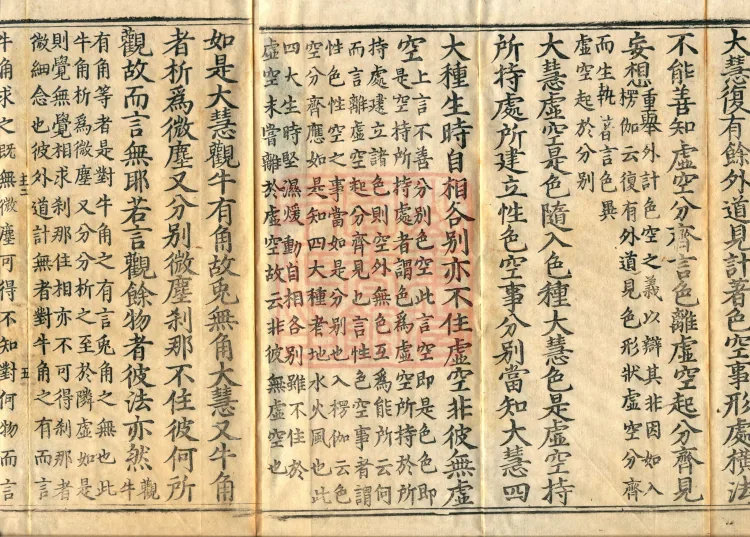 大慧復有餘外道見計著色空事形處橫法
不能善知虛空分齊言色離虛空起分齊見
妄想重舉外計色空之義以辯其非因如入
楞伽云復有外道見色形狀虛空分齊
而生執著言色異
虛空起於分別
大慧虛空是色隨入色種大慧色是虛空持
所持處所建立性色空事分別當知大慧四
大種生時自相各別亦不住虛空非彼無虛
空上言不善分別色空此言空即是色色即
是空持所持處者謂色為虛空所持於所
持處建立諸色則空外無色互為能所云何
而言離虛空起分齊見也言性色空事者謂
性色性空之事當如是分別也入楞伽云色
空分齊應如是知四大種者地水火風也此
四大生時堅濕煖動自相各別雖不住於
虛空未嘗離於虛空故云非彼無虛空也
如是大慧觀牛有角故兎無角大慧又牛角
者析為微塵又分別微塵剎那不住彼何所
觀故而言無耶若言觀餘物者彼法亦然觀
牛
有角等者是對牛角之有言兎角之無也此
牛角析為微塵又分分析之至於隣虛如是
則覺無覺相求剎那住相亦不可得剎那者
微細念也彼外道計無者對牛角之有而言
主二 五
牛角求之既無微塵可得不知對何物而言